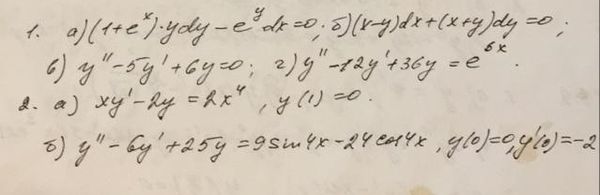 1. а) (1+e^x)·ydy−e^y dx=0; б) (x−y)dx+(x+y)dy=0;
в) y''−5y'+6y=0; г) y''−12y'+36y=e^6x.
2. а) xy'−2y=2x^4, y(1)=0.
б) y''−6y'+25y=9sin4x−24cos4x, y(0)=0, y'(0)=−2